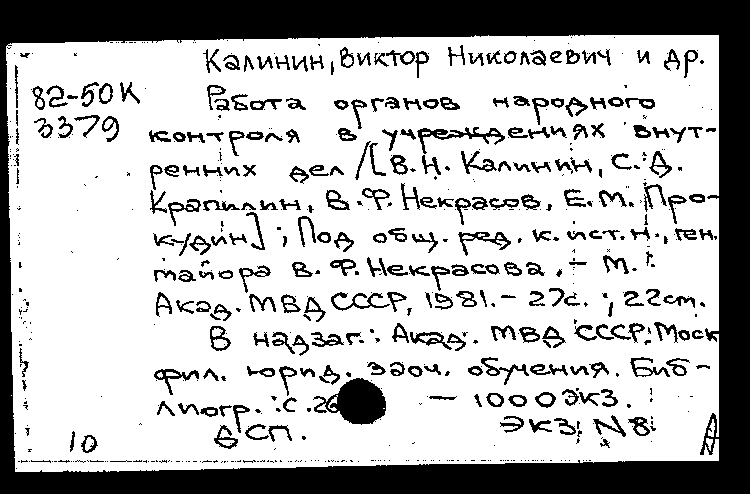 Калинин, Виктор Николаевич и др.
82-50К
3379
Работа органов народного
контроля в учреждениях внут-
ренних дел / [В.Н. Калинин, С.Д.
Крапилин, В.Ф. Некрасов, Е.М. Про-
кудин]; Под общ. ред. к. ист. н., ген.
майора В.Ф. Некрасова. - М.:
Акад. МВД СССР, 1981. - 27с.; 22см.
В надзаг.: Акад. МВД СССР. Моск
фил. юрид. заоч. обучения. Биб-
лиогр.: с. 26 - 1000 экз.
ДСП. Экз. N8
10